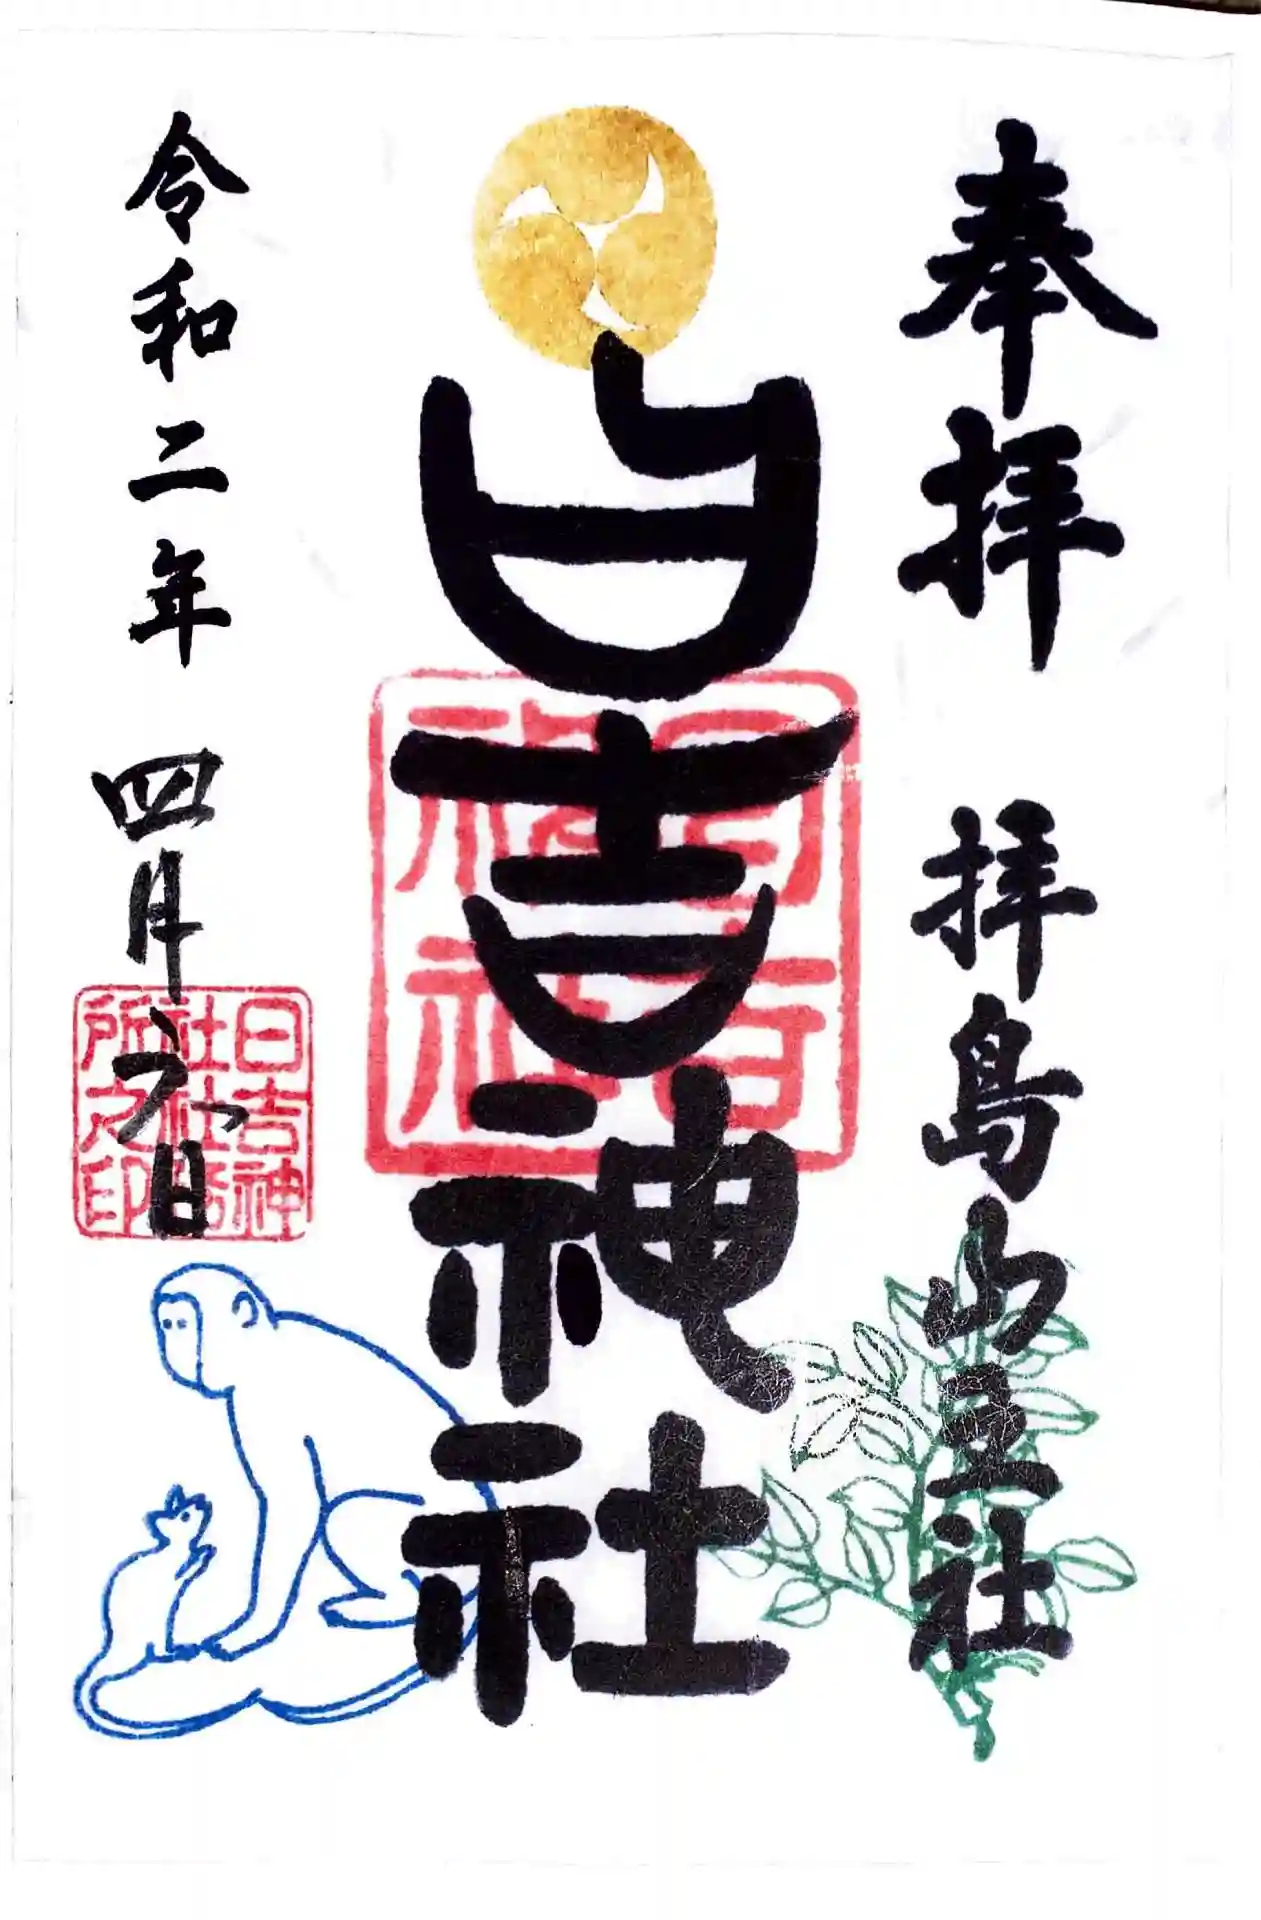 奉拝 拝島山王社
日吉神社
日吉
神社
令和二年四月六日
日吉神
社社務
所之印